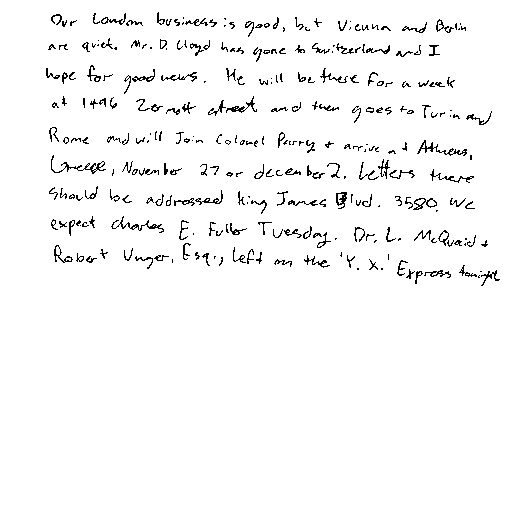 Our London business is good, but Vienna and Berlin
are quiet. Mr. D. Lloyd has gone to Switzerland and I
hope for good news. He will be there for a week
at 1496 Zermott street and then goes to Turin and
Rome and will Join Colonel Parry + arrive at Athens,
Greece, November 27 or december 2. Letters there
should be addressed King James Blvd. 3580. We
expect Charles E. Fuller Tuesday. Dr. L. McQuaid +
Robert Unger, Esq., left on the 'Y. X.' Express tonight